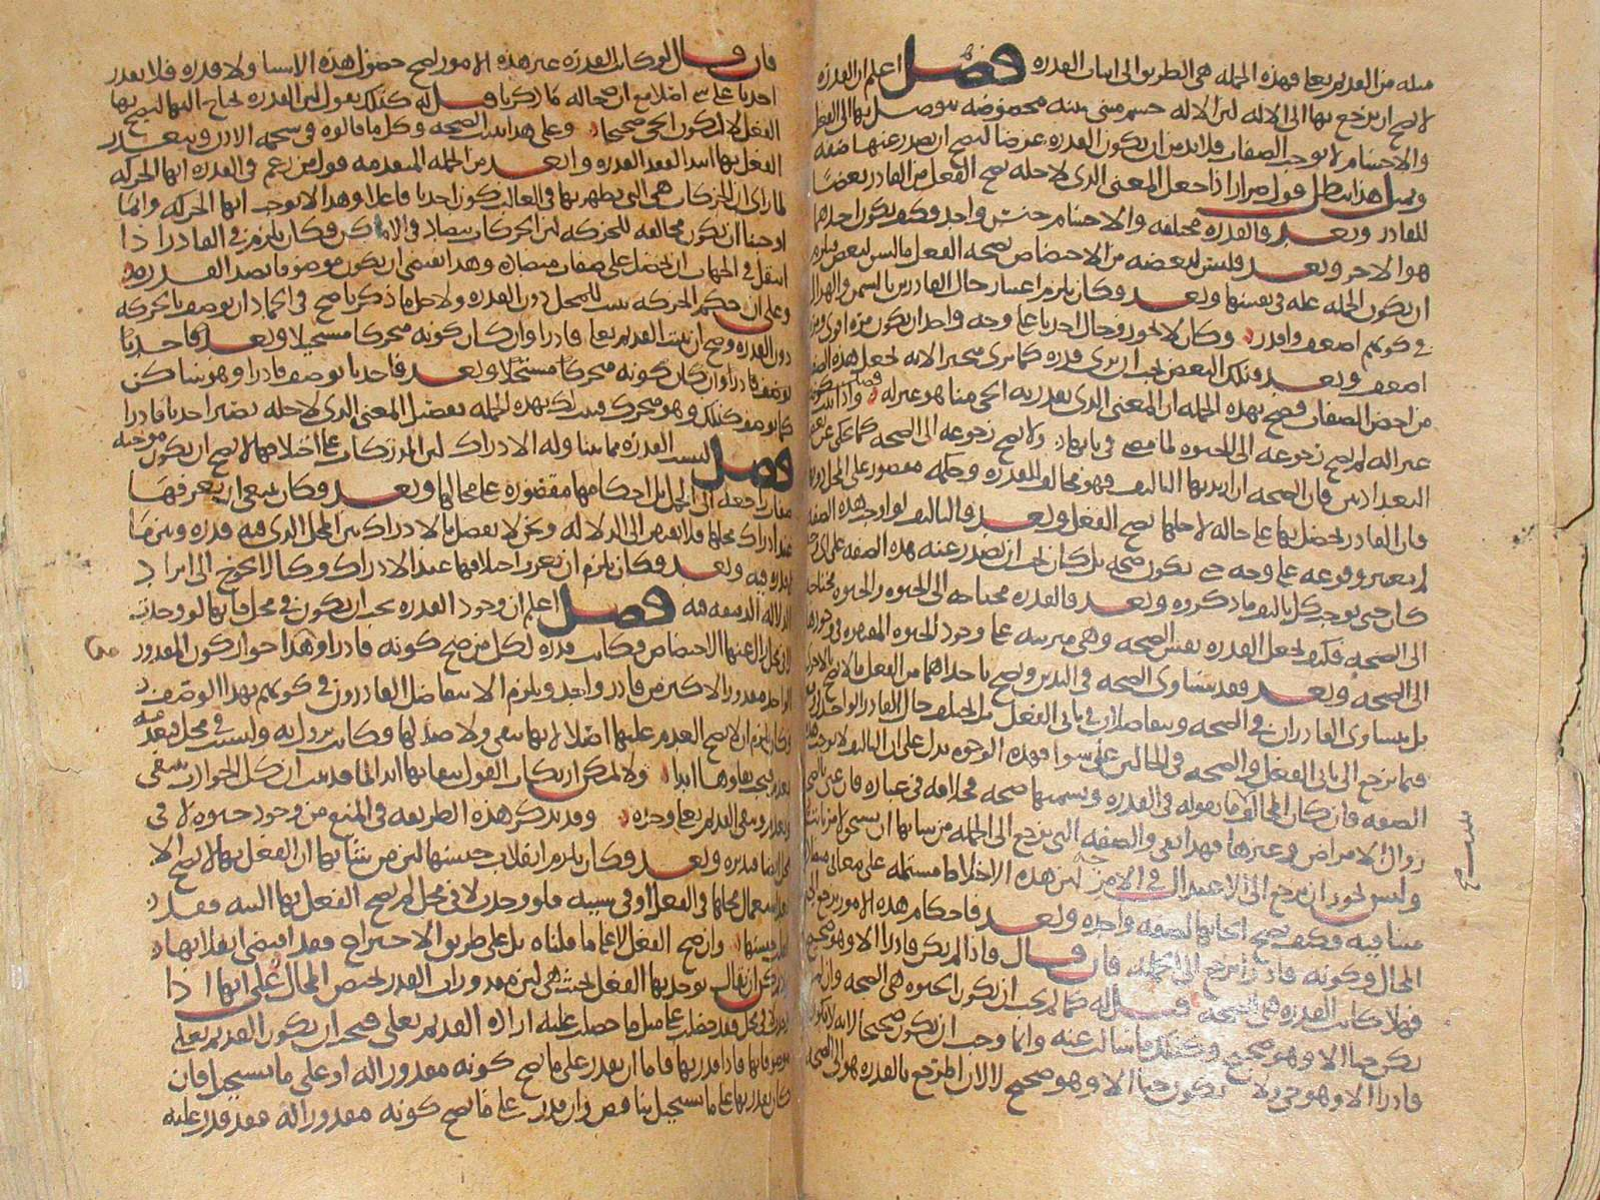 مثله من القديم تعالى فهذه الجملة هي الطريق الى اثبات القدرة فصل اعلم ان القدرة
لا يصح ان يرجع بها الى الالة لان الالة جسم مبني بنية مخصوصة يتوصل بها الى الفعل
والاجسام لا توجب الصفات فلا بد من ان تكون القدرة عرضا ليصح ان يصدر عنها صفة
وبمثل هذا يبطل قول ضرار اذا جعل المعنى الذي لاجله يصح الفعل من القادر بعضا
للقادر وبعد فالقدرة مختلفة والاجسام جنس واحد وكيف يكون احدهما
هو الاخر وبعد فليس لبعضه من الاختصاص بصحة الفعل ما ليس لبعض
ان يكون الجملة علة في نفسها وبعد فكان يلزم اعتبار حال القادرين بالسمن والهزال
في كونهم اضعف واقدر وكان لا يجوز وحال احدنا على وجه واحد ان يكون مرة اقوى
اضعف وبعد فذلك البعض يجب ان يرى قدرة كما يرى متحيزا لانه يجعل هذه الصفة
من اخص الصفات فصح بهذه الجملة ان المعنى الذي يقدر به الحي منا هو غيره له فصل واذا ثبت
غير الله لم يصح رجوعه الى الحيوة لما مضى في بابها ولا يصح رجوعه الى الصحة كما حكي عن
البغداديين فان الصحة ان اريد بها التاليف فهو مخالف للقدرة وحكمه مقصور على المحل
فان القادر يحصل بها على حالة لاجلها يصح الفعل وبعد فالتاليف لو اوجب هذه الصفة
لم يعتبر وقوعه على وجه حتى يكون صحة بل كان يجب ان يصدر عنه هذه الصفة على اي
كان حتى يوجب كل تاليف ما ذكروه وبعد فالقدرة محتاجة الى الحيوة والحيوة محتاجة
الى الصحة فكيف تجعل القدرة نفس الصحة وهي مترتبة على وجود الحيوة المفتقرة في وجودها
الى الصحة وبعد فقد يتساوى الصحة في اليدين ويصح باحداهما من الفعل ما لا يصح بالاخرى
بل يتساوى القادران في الصحة ويتفاضلان في تاتي الفعل بل يختلف حال القادر الواحد
فيما يرجع الى تاتي الفعل والصحة في الحالين على سوا فهذه الوجوه تدل على ان التاليف لا يوجب هذه
الصفة فان كان المخالف ما نقوله في القدرة ويسميها صحة فخلافه في عبارة فان عنى بالصحة
زوال الامراض وغيرها فهذا نفي والصفة التي ترجع الى الجملة من شانها ان يستحيل
وليس يجوز ان يرجع الى الاعتدال في الامزجة لان هذه الاخلاط مشتملة على معان
متنافية فكيف يصح ايجابها لصفة واحدة وبعد فاحكام هذه الامور يرجع الى
المحال وكونه قادرا يرجع الى الجملة فان قال فاذا لم يكن قادرا الا وهو صحيح
فهلا كانت القدرة هي الصحة قيل له كما لم يجب ان يكون الحيوة هي الصحة وان لم
يكن حيا الا وهو صحيح وكذلك ما سالت عنه وانما وجب ان يكون صحيحا لانه لا يكون
قادرا الا وهو حي ولا يكون حيا الا وهو صحيح لا لان المرجع بالقدرة هو الى الصحة
فان قال لو كانت القدرة غير هذه الامور لصح حصول هذه الاشيا ولا قدرة فلا يقدر
احدنا على شي اصلا مع ان حاله ما ذكرنا قيل له كذلك نقول لان القدرة يحتاج اليها ليصح بها
الفعل لا لتكون الحي صحيحا وعلى هذا يثبت الصحة وكل ما قالوه في شحمة الاذن ويتعذر
الفعل بها ابتدا لفقد القدرة وابعد من الجملة المتقدمة قول من زعم في القدرة انها الحركة
لما راى ان الحركات هي التي يظهر بها في الغالب كون احدنا فاعلا وهذا لا يوجب انها الحركة وانما
اوجبنا ان يكون مخالفة للحركة لان الحركات يتضاد في الاماكن وكان يلزم في القادر اذا
انتقل في الجهات ان يحصل على صفات متضادة وهذا يقتضي ان يكون موصوفا بضد القدرة
وعلى ان حكم الحركة يثبت للمحل دون القدرة ولاجل ما ذكرنا صح في الجماد ان يوصف بالحركة
دون القدرة وصح ان يثبت القديم تعالى قادرا وان كان كونه متحركا مستحيلا وبعد فاحدنا
يوصف قادرا وان كان كونه متحركا مستحيلا وبعد فاحدنا يوصف قادرا وهو ساكن
كما يوصف كذلك وهو متحرك فثبت لك بهذه الجملة تفصيل المعنى الذي لاجله يصير احدنا قادرا
فصل ليست القدرة مما يتناوله الادراك لان المدركات على اختلافها لا يصح ان يكون موجبة
صفات راجعة الى الجمل بل احكامها مقصورة على محالها وبعد فكان ينبغي ان يعرفها
عند ادراك محلها فلا يفتقر الى الدلالة ونحن لا نفصل بالادراك بين المحل الذي فيه قدرة وبين ما
لا قدرة فيه وبعد فكان يلزم ان نعرف اختلافها عند الادراك وكنا لا نحوج الى ايراد
الدلالة الدقيقة فيه فصل اعلم ان وجود القدرة يجب ان يكون في محل فانها لو وجدت
لا في محل لزال عنها الاختصاص فكانت قدرة لكل من صح كونه قادرا وهذا جواز كون المقدور
الواحد مقدورا لاكثر من قادر واحد ويلزم الا يتفاضل القادرون في كونهم بهذا الوصف
وكان يلزم ان لا يصح العدم عليها اصلا لانها تبقى ولا ضد لها وكانت تزول به وليست في محل فيعدم
بعدمه فيجب بقاوها ابدا ولا يمكن ارتكاب القول ببقائها ابدا لما قد ثبت ان كل الحوادث تنتفي
وتعدم ويبقى القديم تعالى وحده وقد يذكر هذه الطريقة في المنع من وجود حيوة لا في
محل ايضا وقدرة وبعد فكان يلزم انقلاب جنسها لان من شانها ان الفعل بها لا يصح الا
بعد استعمال محلها في الفعل او في سببه فلو وجدت لا في محل لم يصح الفعل بها البتة فقد
انقلب جنسها وان صح الفعل لا على ما قلناه بل على طريق الاختراع فقد اقتضى انقلابها
ولا يمكن ان يقال يوجد بها الفعل بحيث هي لان مقدورات القدر لتختص المحال على انها اذا
وجدت لا في محل فقد حصلت على مثل ما حصلت عليه ارادة القديم تعالى فيجب ان يكون القديم تعالى
موصوفا بها قادرا بها فاما ان يقدر على ما يصح كونه مقدورا له او على ما يستحيل فان
كان يقدر بها على ما يستحيل تناقض وان قدر على ما يصح كونه مقدورا له فقد قدر عليه